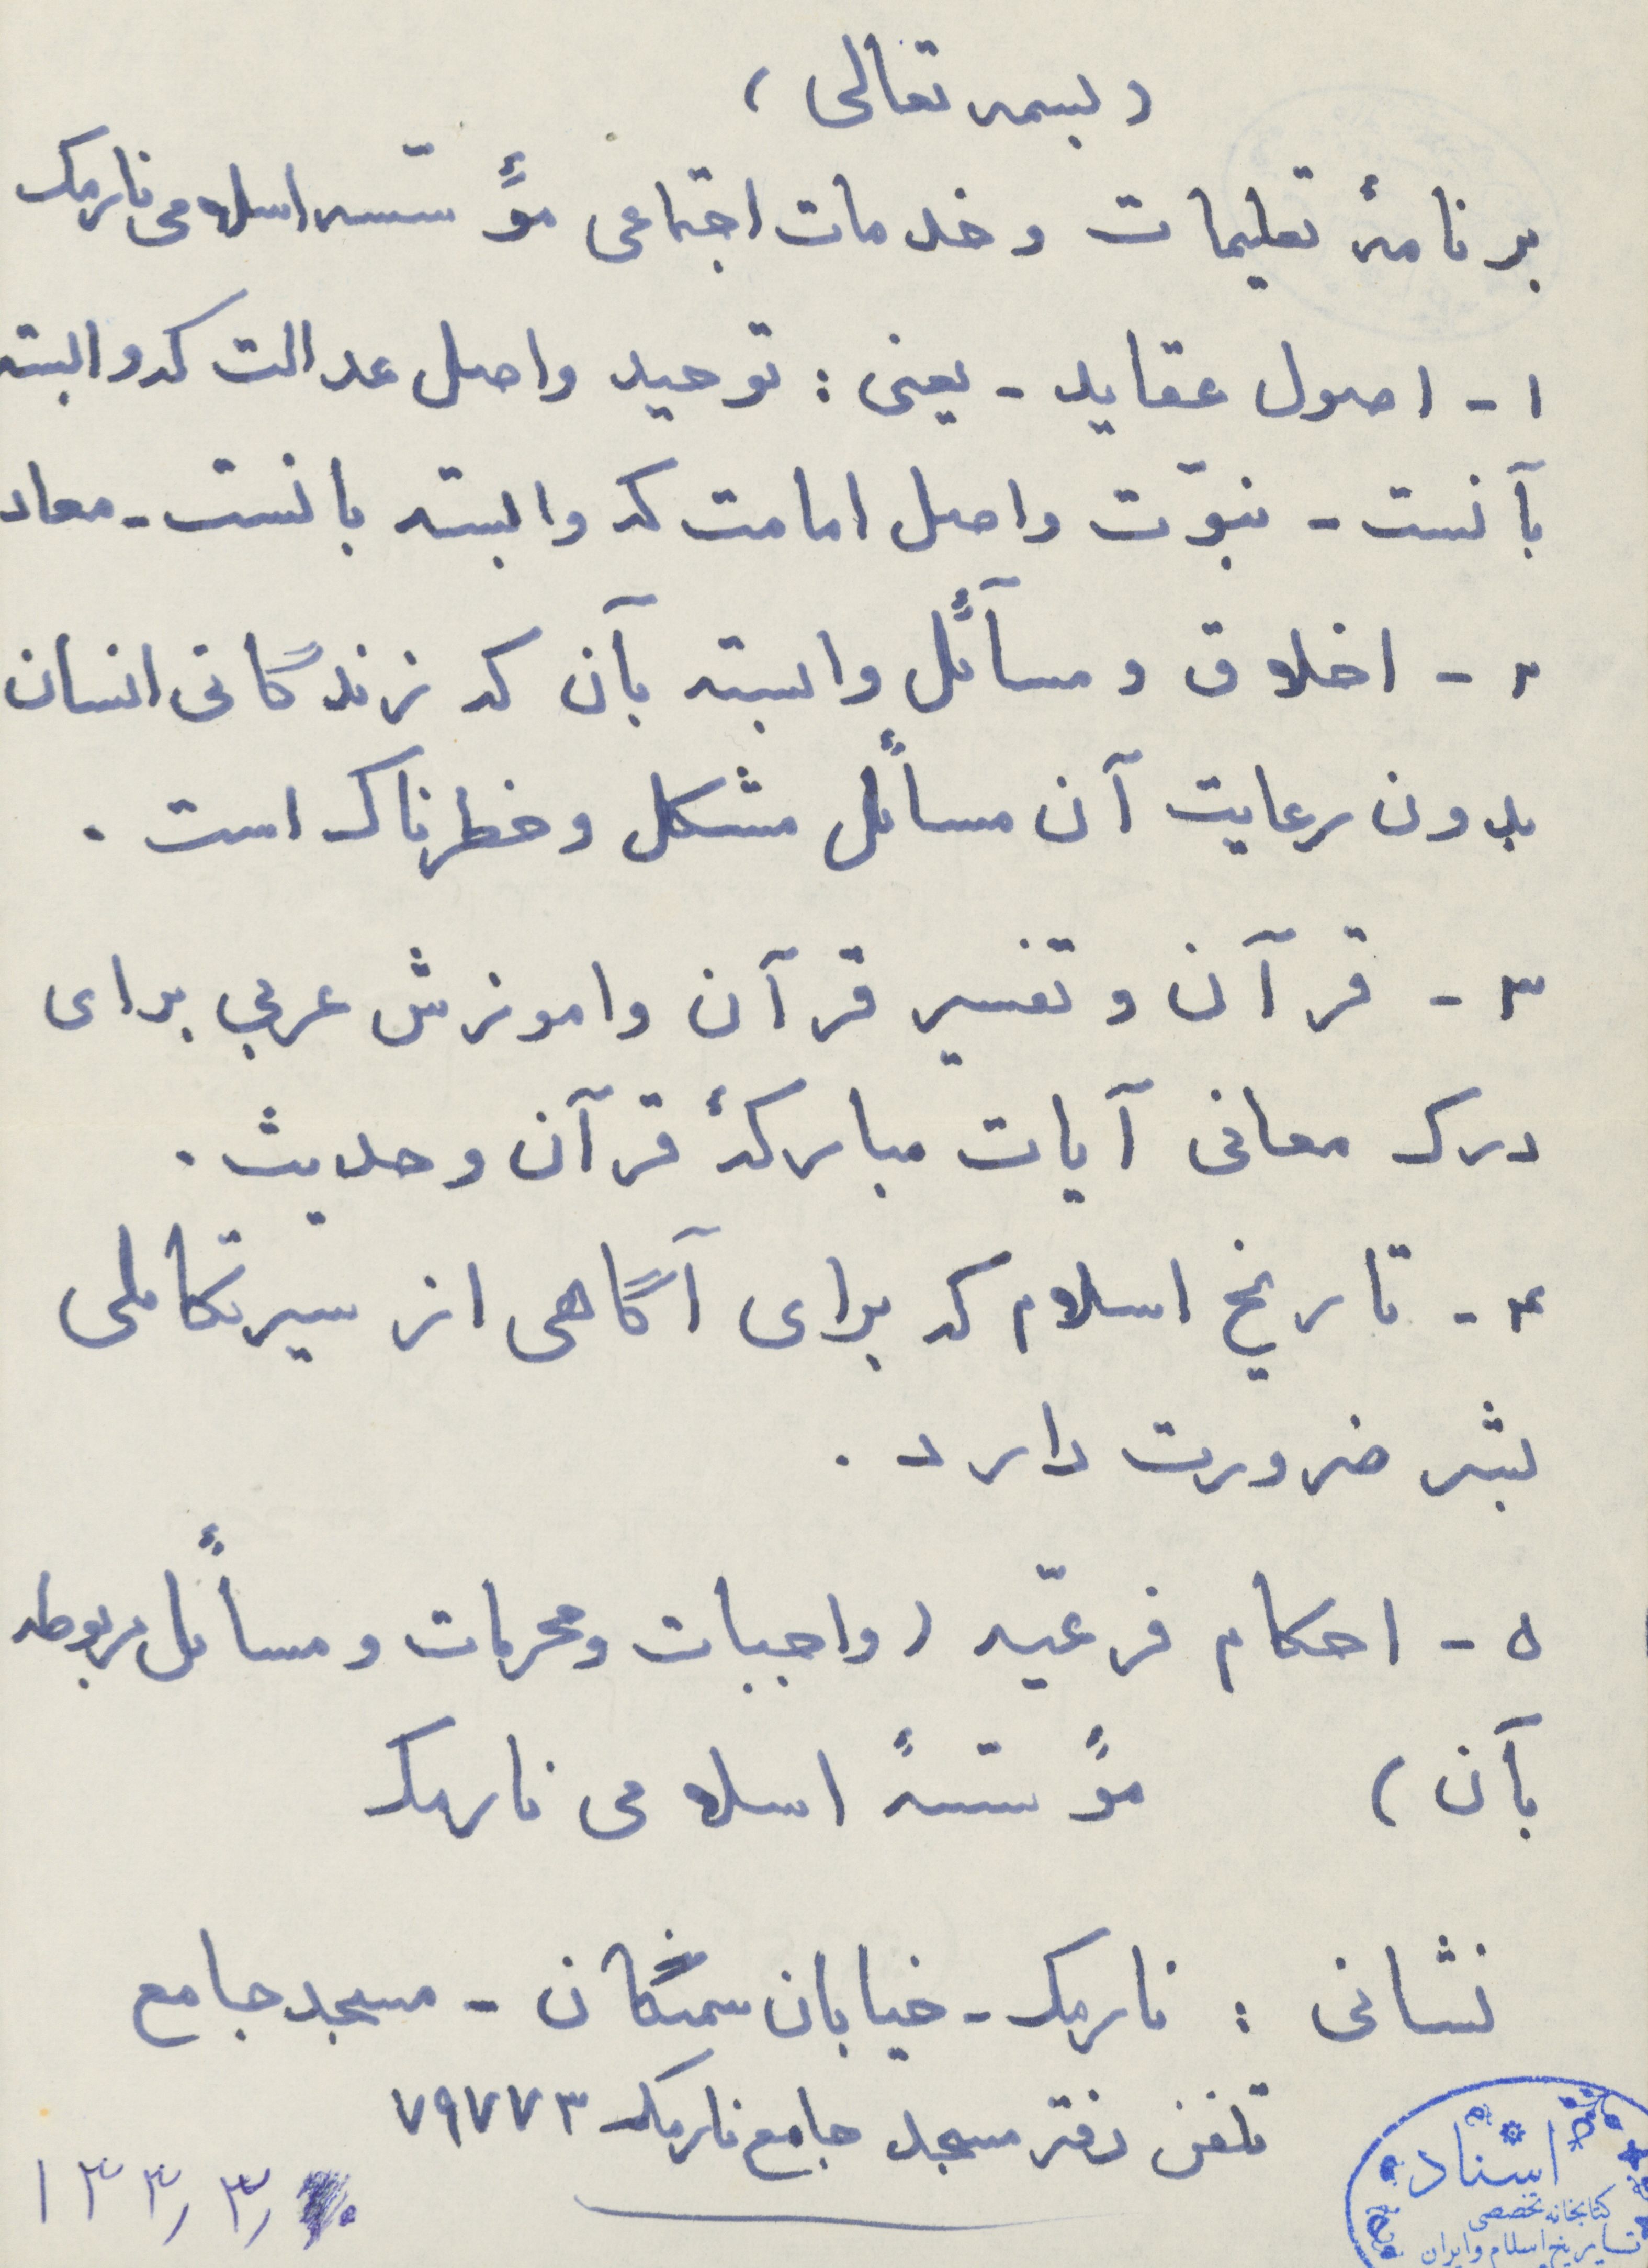 (بسمه تعالی)
برنامهٔ تعلیمات و خدمات اجتماعی مؤسّسه اسلامی نارمک
۱- اصول عقاید - یعنی : توحید واصل عدالت که وابسته
بآنست - نبوّت واصل امامت که وابسته بانست - معاد
۲- اخلاق و مسآئل وابسته بآن که زندگانی انسان
بدون رعایت آن مسائل مشکل وخطرناک است .
۳- قرآن و تفسیر قرآن واموزش عربي برای
درک معانی آیات مبارکهٔ قرآن و حدیث .
۴- تاریخ اسلام که برای آگاهی از سیر تکاملی
بشر ضرورت دارد .
۵- احکام فرعیّه (واجبات ومحرمات و مسائل مربوطه
بآن) مؤسّسهٔ اسلامی نارمک
نشانی : نارمک - خیابان سمنگان - مسجد جامع
تلفن دفتر مسجد جامع نارمک ۷۹۷۷۳
اسناد
کتابخانه تخصصی
تاریخ اسلام و ایران